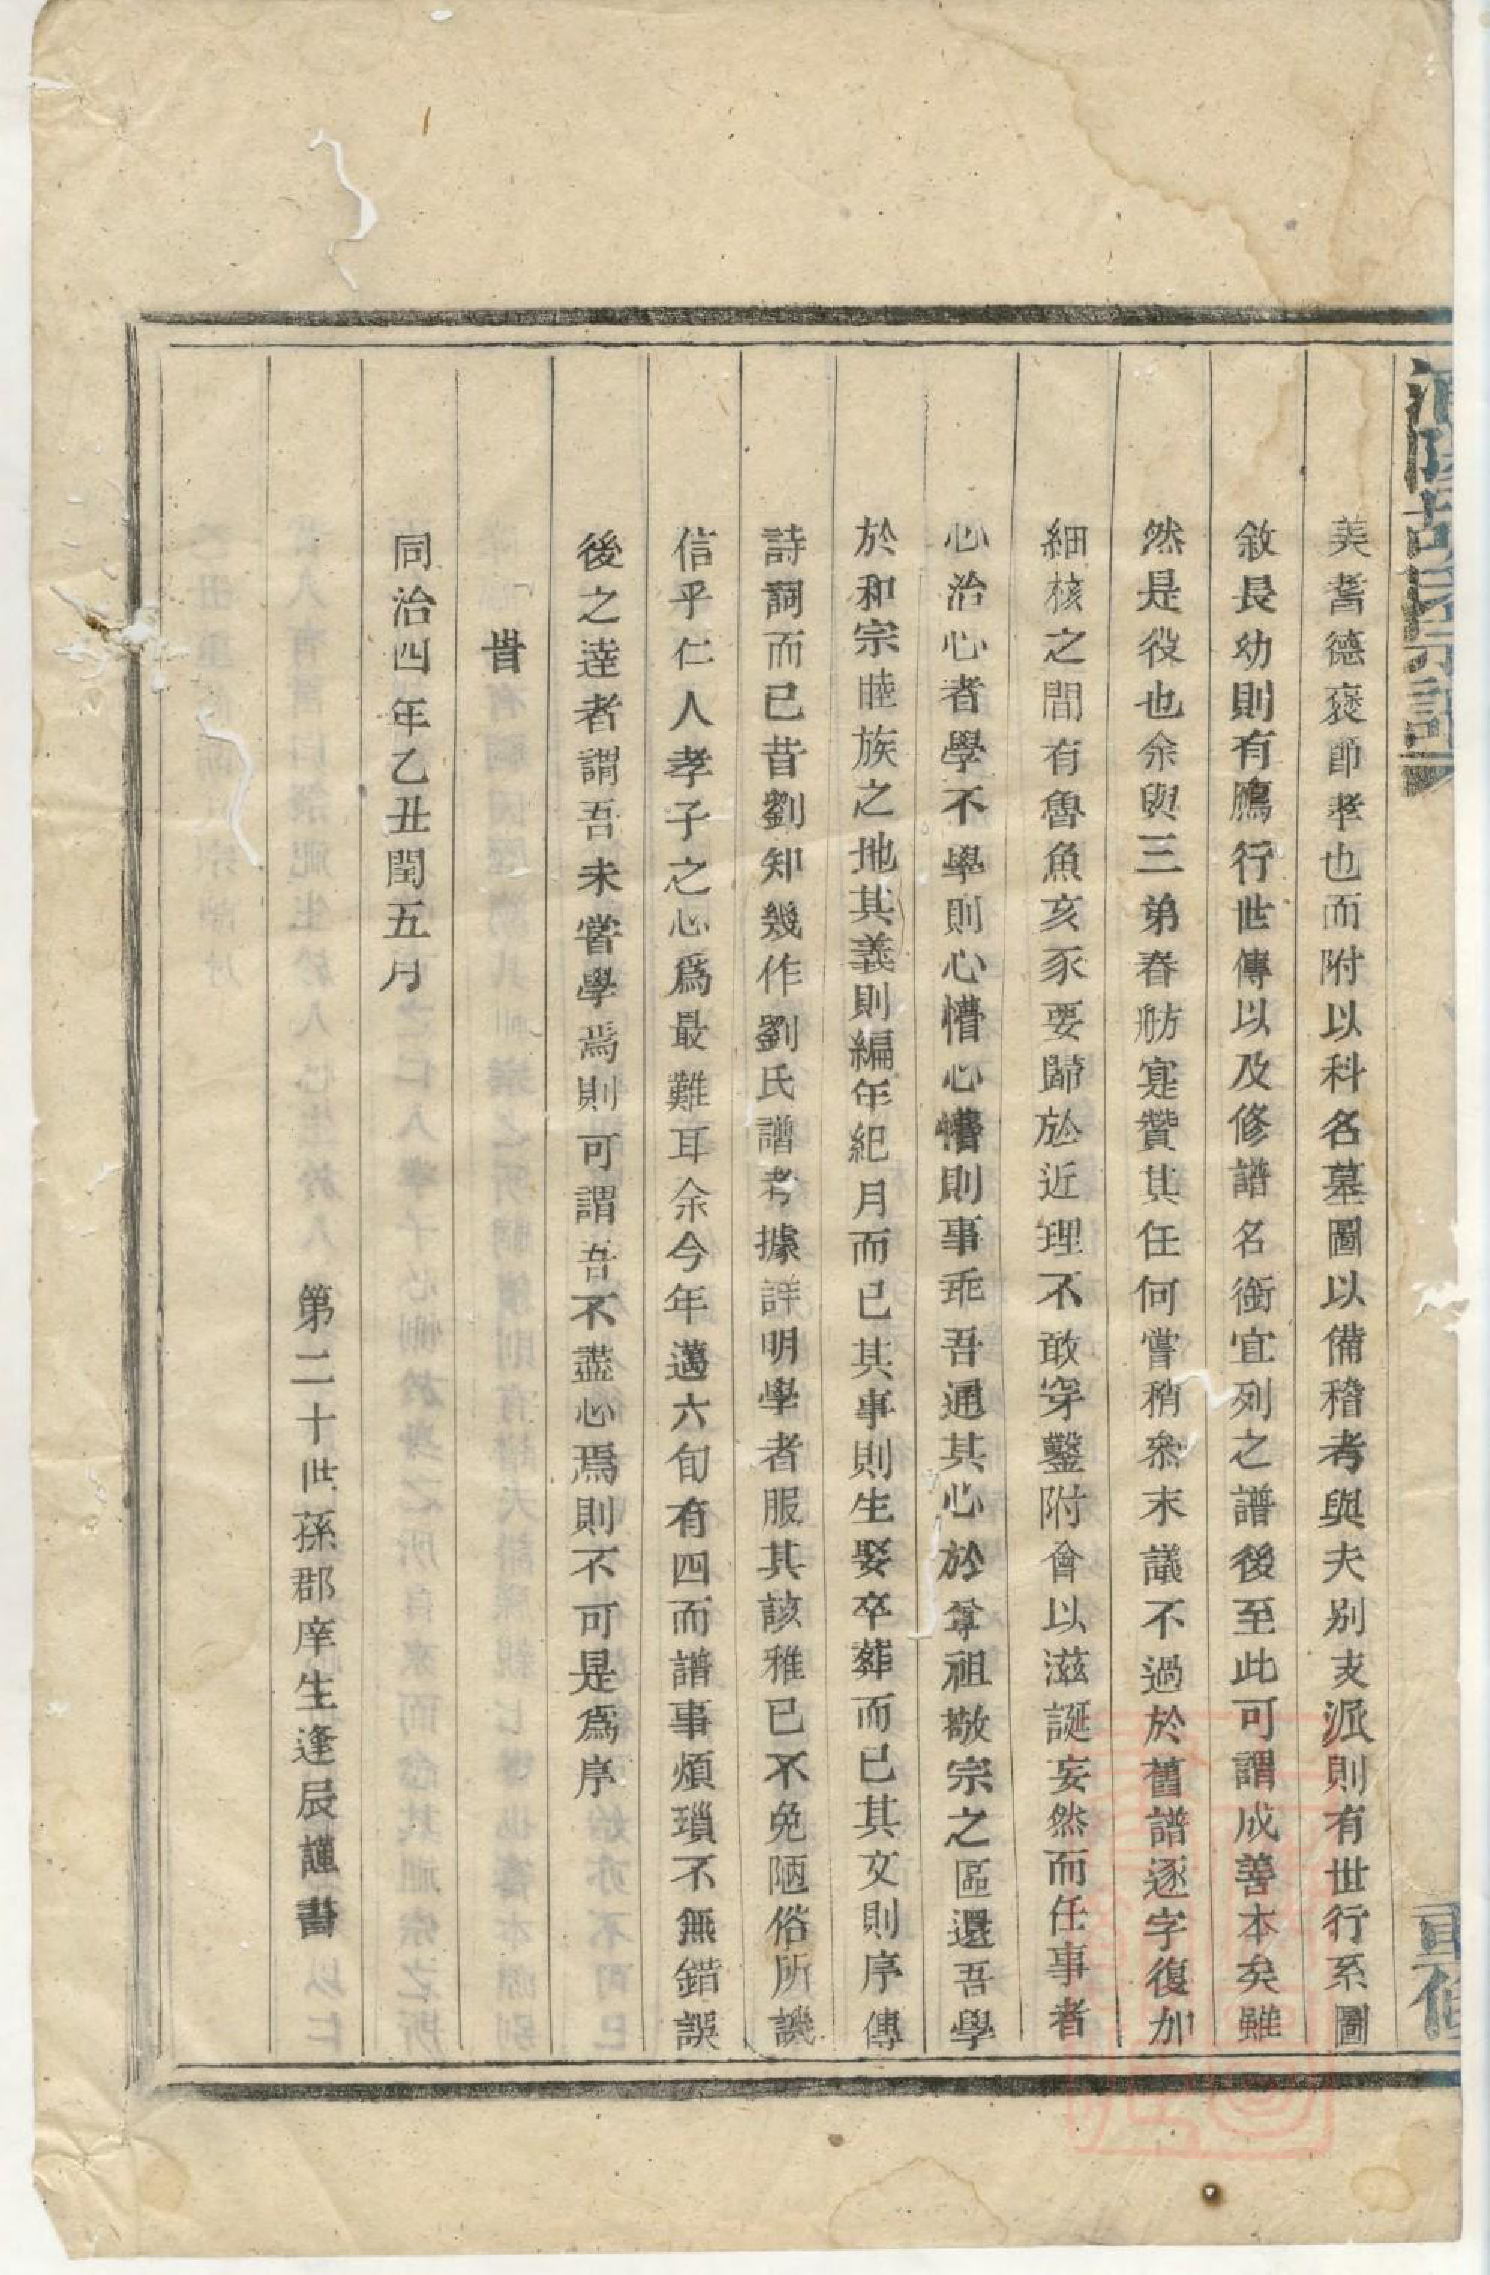 美耆德褒節孝也而附以科名墓圖以備稽考與夫別支派則有世行系圖
敘長幼則有鴈行世傳以及修譜名銜宜列之譜後至此可謂成善本矣雖
然是役也余與三弟春舫寔贊其任何嘗稍叅末議不過於舊譜逐字復加
細核之間有魯魚亥豕要歸於近理不敢穿鑿附會以滋誕妄然而任事者
心治心者學不學則心懵心懵則事乖吾通其心於尊祖敬宗之區還吾學
於和宗睦族之地其義則編年紀月而已其事則生娶卒葬而已其文則序傳
詩詞而已昔劉知幾作劉氏譜考據詳明學者服其該雅已不免陋俗所譏
信乎仁人孝子之心爲最難耳余今年邁六旬有四而譜事煩瑣不無錯誤
後之達者謂吾未嘗學焉則可謂吾不盡心焉則不可是爲序
旹
同治四年乙丑閏五月
第二十世孫郡庠生逢辰謹書
重修